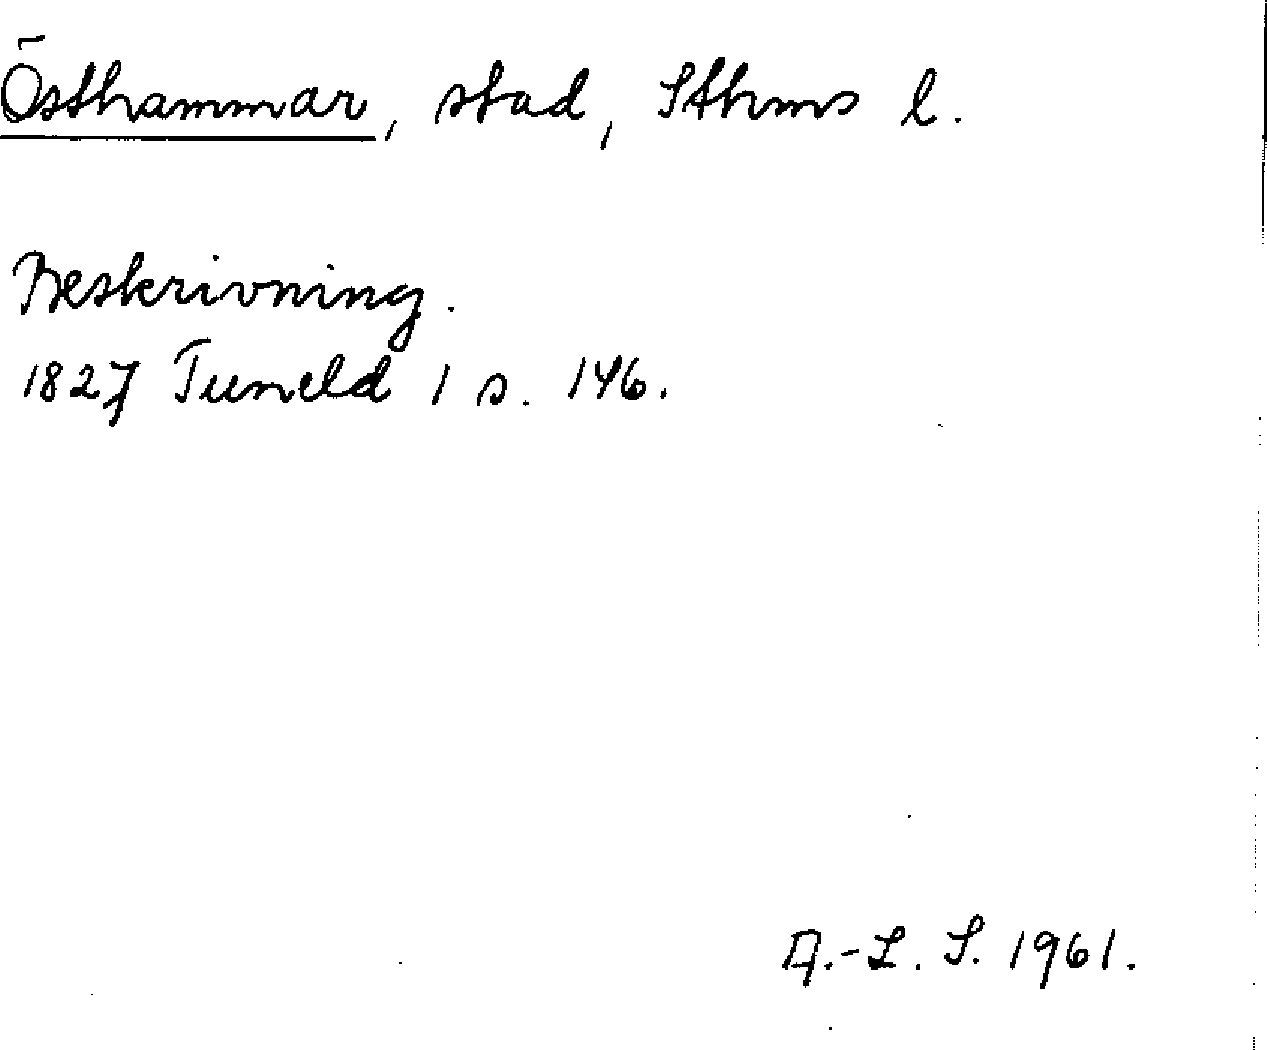 Östhammar, stad, Sthms l.
Beskrivning.
1827 Tuneld 1 s. 146.
A.-L. S. 1961.